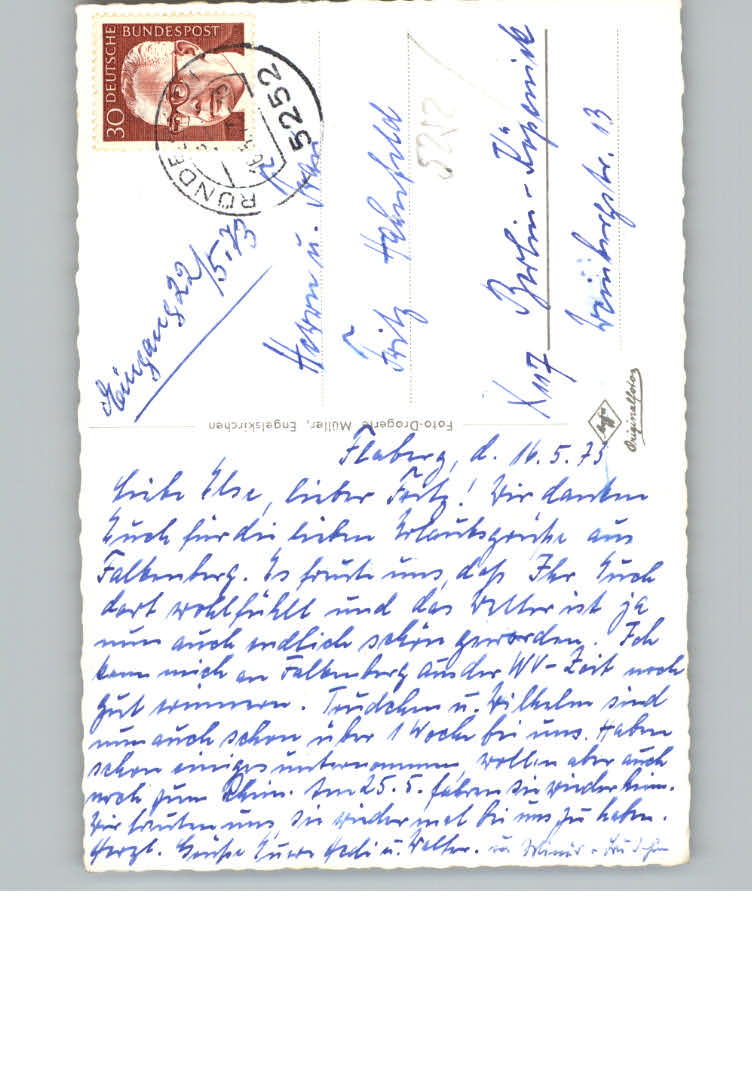 30 DEUTSCHE BUNDESPOST
RÜNDE
5252
Eingang 22/5.73
Herrn u. Frau
Fritz Hahnfeld
5252
X 117 Berlin-Köpenick
Weinbergstr. 13
Foto-Drogerie Müller, Engelskirchen
Agfa
Originalfoto
Flaberg, d. 16.5.73
Liebe Else, lieber Fritz! Wir danken
Euch für die lieben Urlaubsgrüße aus
Falkenberg. Es freut uns, daß Ihr Euch
dort wohlfühlt und das Wetter ist ja
nun auch endlich schön geworden. Ich
kann mich an Falkenberg aus der WV-Zeit noch
gut erinnern. Trudchen u. Wilhelm sind
nun auch schon über 1 Woche bei uns. Haben
schon einiges unternommen, wollen aber auch
noch zum Rhein. Am 25.5. fahren sie wieder heim.
Wir freuten uns, sie wieder mal bei uns zu haben.
Herzl. Grüße Eure Hedi u. Walter.